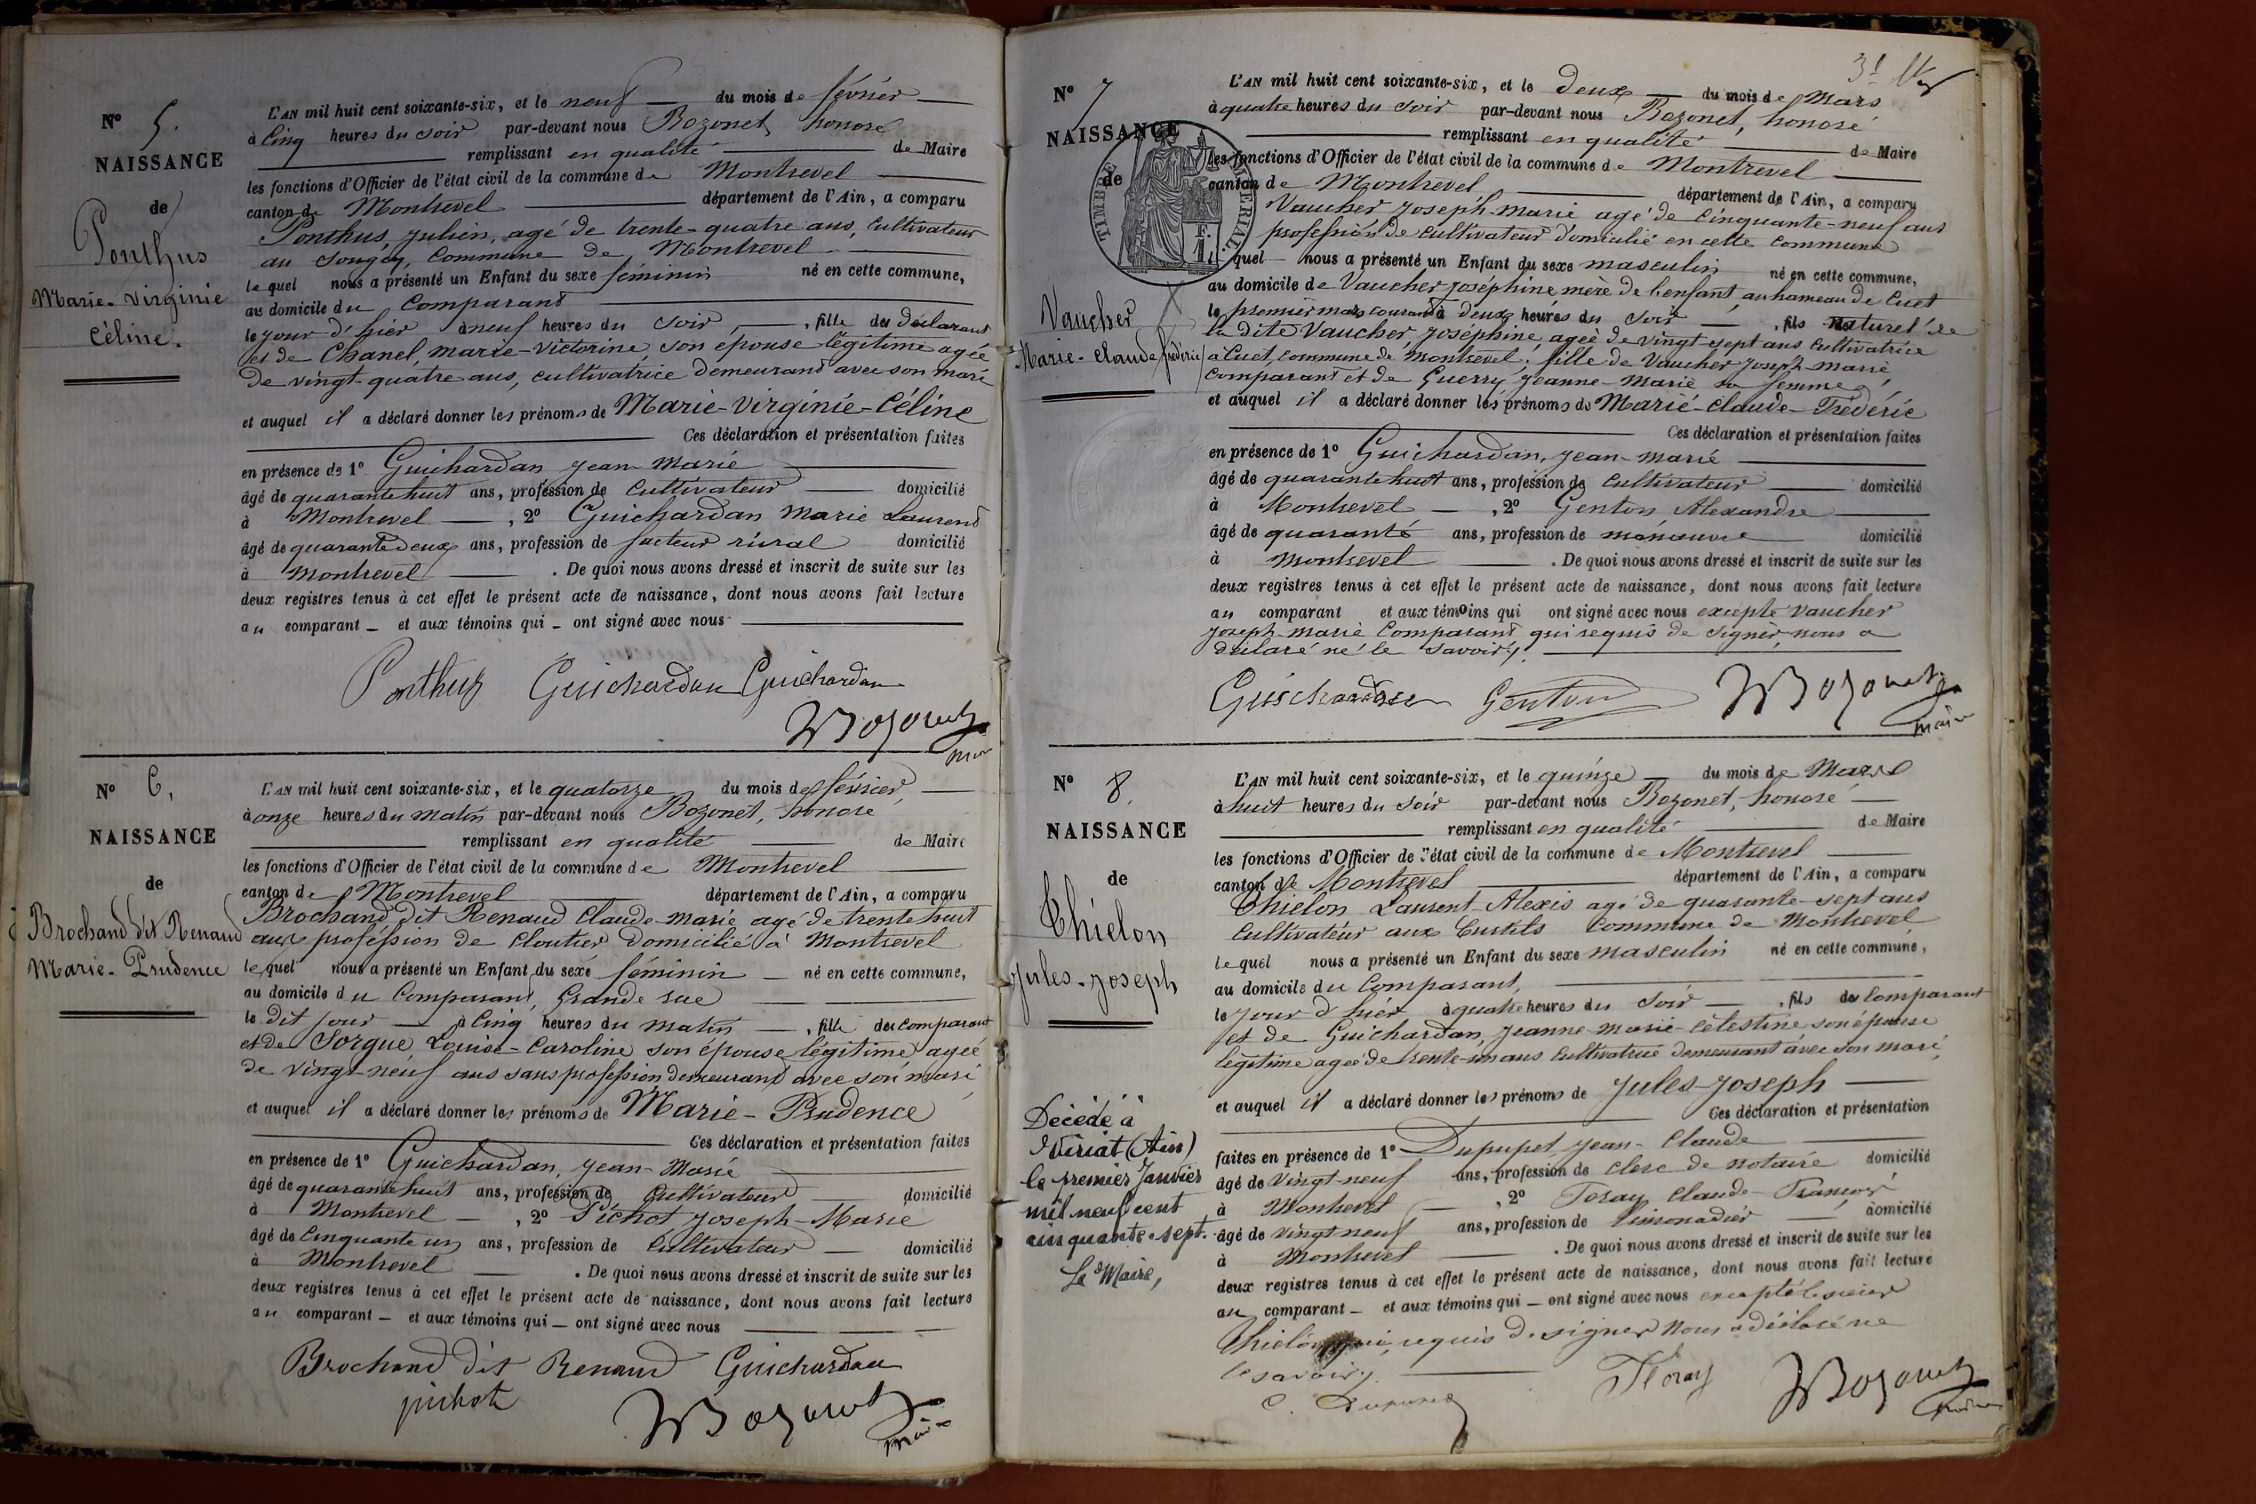 N° 5.
NAISSANCE
de
Ponthus
Marie-Virginie
Céline.
L'AN mil huit cent soixante-six, et le neuf du mois de février
à Cinq heures du soir par-devant nous Bozonet, honoré
remplissant en qualité de Maire
les fonctions d'Officier de l'état civil de la commune de Montrevel
canton de Montrevel département de l'Ain, a comparu
Ponthus, Julien, agé de trente-quatre ans, Cultivateur
au Sougey, Commune de Montrevel
lequel nous a présenté un Enfant du sexe féminin né en cette commune,
au domicile du Comparant
le jour d'hier à neuf heures du soir, fille du déclarant
et de Chanel, Marie-Victorine, son épouse légitime agée
de vingt-quatre ans, cultivatrice demeurant avec son mari
et auquel il a déclaré donner les prénoms de Marie-Virginie-Céline
Ces déclaration et présentation faites
en présence de 1° Guichardan Jean Marie
âgé de quarante huit ans, profession de Cultivateur domicilié
à Montrevel, 2° Guichardan Marie Laurent
âgé de quarante deux ans, profession de facteur rural domicilié
à Montrevel. De quoi nous avons dressé et inscrit de suite sur les
deux registres tenus à cet effet le présent acte de naissance, dont nous avons fait lecture
au comparant et aux témoins qui ont signé avec nous
Ponthus Guichardan Guichardan
Bozonet
maire
N° 6,
NAISSANCE
de
Brochand dit Renaud
Marie-Prudence
L'AN mil huit cent soixante-six, et le quatorze du mois de février,
à onze heures du matin par-devant nous Bozonet, honoré
remplissant en qualité de Maire
les fonctions d'Officier de l'état civil de la commune de Montrevel
canton de Montrevel département de l'Ain, a comparu
Brochand dit Renaud Claude-Marie agé de trente huit
ans profession de Cloutier domicilié à Montrevel
lequel nous a présenté un Enfant du sexe féminin né en cette commune,
au domicile du Comparant, Grande rue
le dit jour à Cinq heures du matin, fille du comparant
et de Sorgue Louise-Caroline son épouse légitime agée
de vingt-neuf ans sans profession demeurant avec son mari,
et auquel il a déclaré donner les prénoms de Marie-Prudence
Ces déclaration et présentation faites
en présence de 1° Guichardan, Jean-Marie
âgé de quarante huit ans, profession de Cultivateur domicilié
à Montrevel, 2° Pichot Joseph-Marie
âgé de Cinquante un ans, profession de Cultivateur domicilié
à Montrevel. De quoi nous avons dressé et inscrit de suite sur les
deux registres tenus à cet effet le présent acte de naissance, dont nous avons fait lecture
au comparant et aux témoins qui ont signé avec nous
Brochand dit Renaud Guichardan
pichot Bozonet
maire
N° 7
NAISSANCE
de
Vaucher
Marie-Claude frédéric
TIMBRE IMPÉRIAL
L'AN mil huit cent soixante-six, et le deux du mois de Mars
à quatre heures du soir par-devant nous Bozonet, honoré
remplissant en qualité de Maire
les fonctions d'Officier de l'état civil de la commune de Montrevel
canton de Montrevel département de l'Ain, a comparu
Vaucher, Joseph-Marie agé de Cinquante-neuf ans
profession de Cultivateur domicilié en cette commune
lequel nous a présenté un Enfant du sexe masculin né en cette commune,
au domicile de Vaucher Joséphine, mère de l'enfant, au hameau de Cuet
le premier mars courant à deux heures du soir, fils naturel de
la dite Vaucher, Joséphine, agée de vingt-sept ans Cultivatrice
à Cuet, commune de Montrevel, fille de Vaucher Joseph-Marie,
Comparant et de Guerry Jeanne-Marie sa femme,
et auquel il a déclaré donner les prénoms de Marie-Claude-Frédéric
Ces déclaration et présentation faites
en présence de 1° Guichardan, Jean-Marie
âgé de quarante huit ans, profession de Cultivateur domicilié
à Montrevel, 2° Genton Alexandre
âgé de quarante ans, profession de manœuvre domicilié
à Montrevel. De quoi nous avons dressé et inscrit de suite sur les
deux registres tenus à cet effet le présent acte de naissance, dont nous avons fait lecture
au comparant et aux témoins qui ont signé avec nous excepté Vaucher
Joseph-Marie Comparant qui requis de signer, nous a
déclaré ne le savoir.
Guichardan Genton Bozonet
maire
N° 8.
NAISSANCE
de
Thielon
Jules-Joseph
Décédé à
Viriat (Ain)
le premier Janvier
mil neuf cent
cinquante-sept.
Le Maire,
L'AN mil huit cent soixante-six, et le quinze du mois de Mars
à huit heures du soir par-devant nous Bozonet, honoré
remplissant en qualité de Maire
les fonctions d'Officier de l'état civil de la commune de Montrevel
canton de Montrevel département de l'Ain, a comparu
Thielon Laurent Alexis agé de quarante-sept ans
Cultivateur aux Curtils Commune de Montrevel
lequel nous a présenté un Enfant du sexe masculin né en cette commune,
au domicile du Comparant,
le jour d'hier à quatre heures du soir, fils du Comparant
et de Guichardan, Jeanne-Marie Célestine son épouse
légitime agée de trente-un ans Cultivatrice demeurant avec son mari,
et auquel il a déclaré donner les prénoms de Jules-Joseph
Ces déclaration et présentation
faites en présence de 1° Dupupet, Jean-Claude
âgé de vingt-neuf ans, profession de clerc de notaire domicilié
à Montrevel, 2° Foray Claude-François
âgé de vingt neuf ans, profession de limonadier domicilié
à Montrevel. De quoi nous avons dressé et inscrit de suite sur les
deux registres tenus à cet effet le présent acte de naissance, dont nous avons fait lecture
au comparant et aux témoins qui ont signé avec nous excepté le sieur
Thielon qui requis de signer nous a déclaré ne
le savoir.
Foray Bozonet
maire